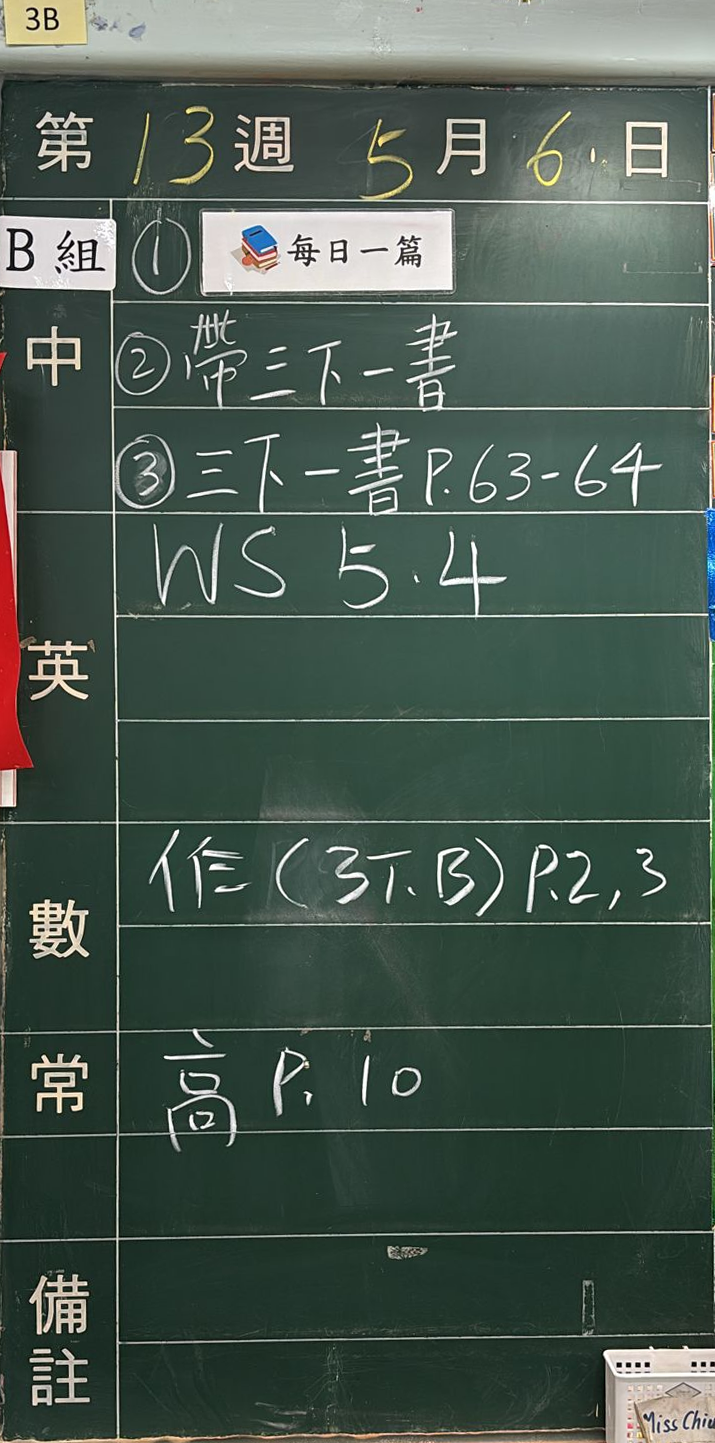 3B
第 13 週 5 月 6 日
B 組 ① 每日一篇
中 ② 帶三下一書
③ 三下一書 P.63-64
WS 5.4
英
作 (3下B) P.2,3
數
常 高 P. 10
備
註
Miss Chiu